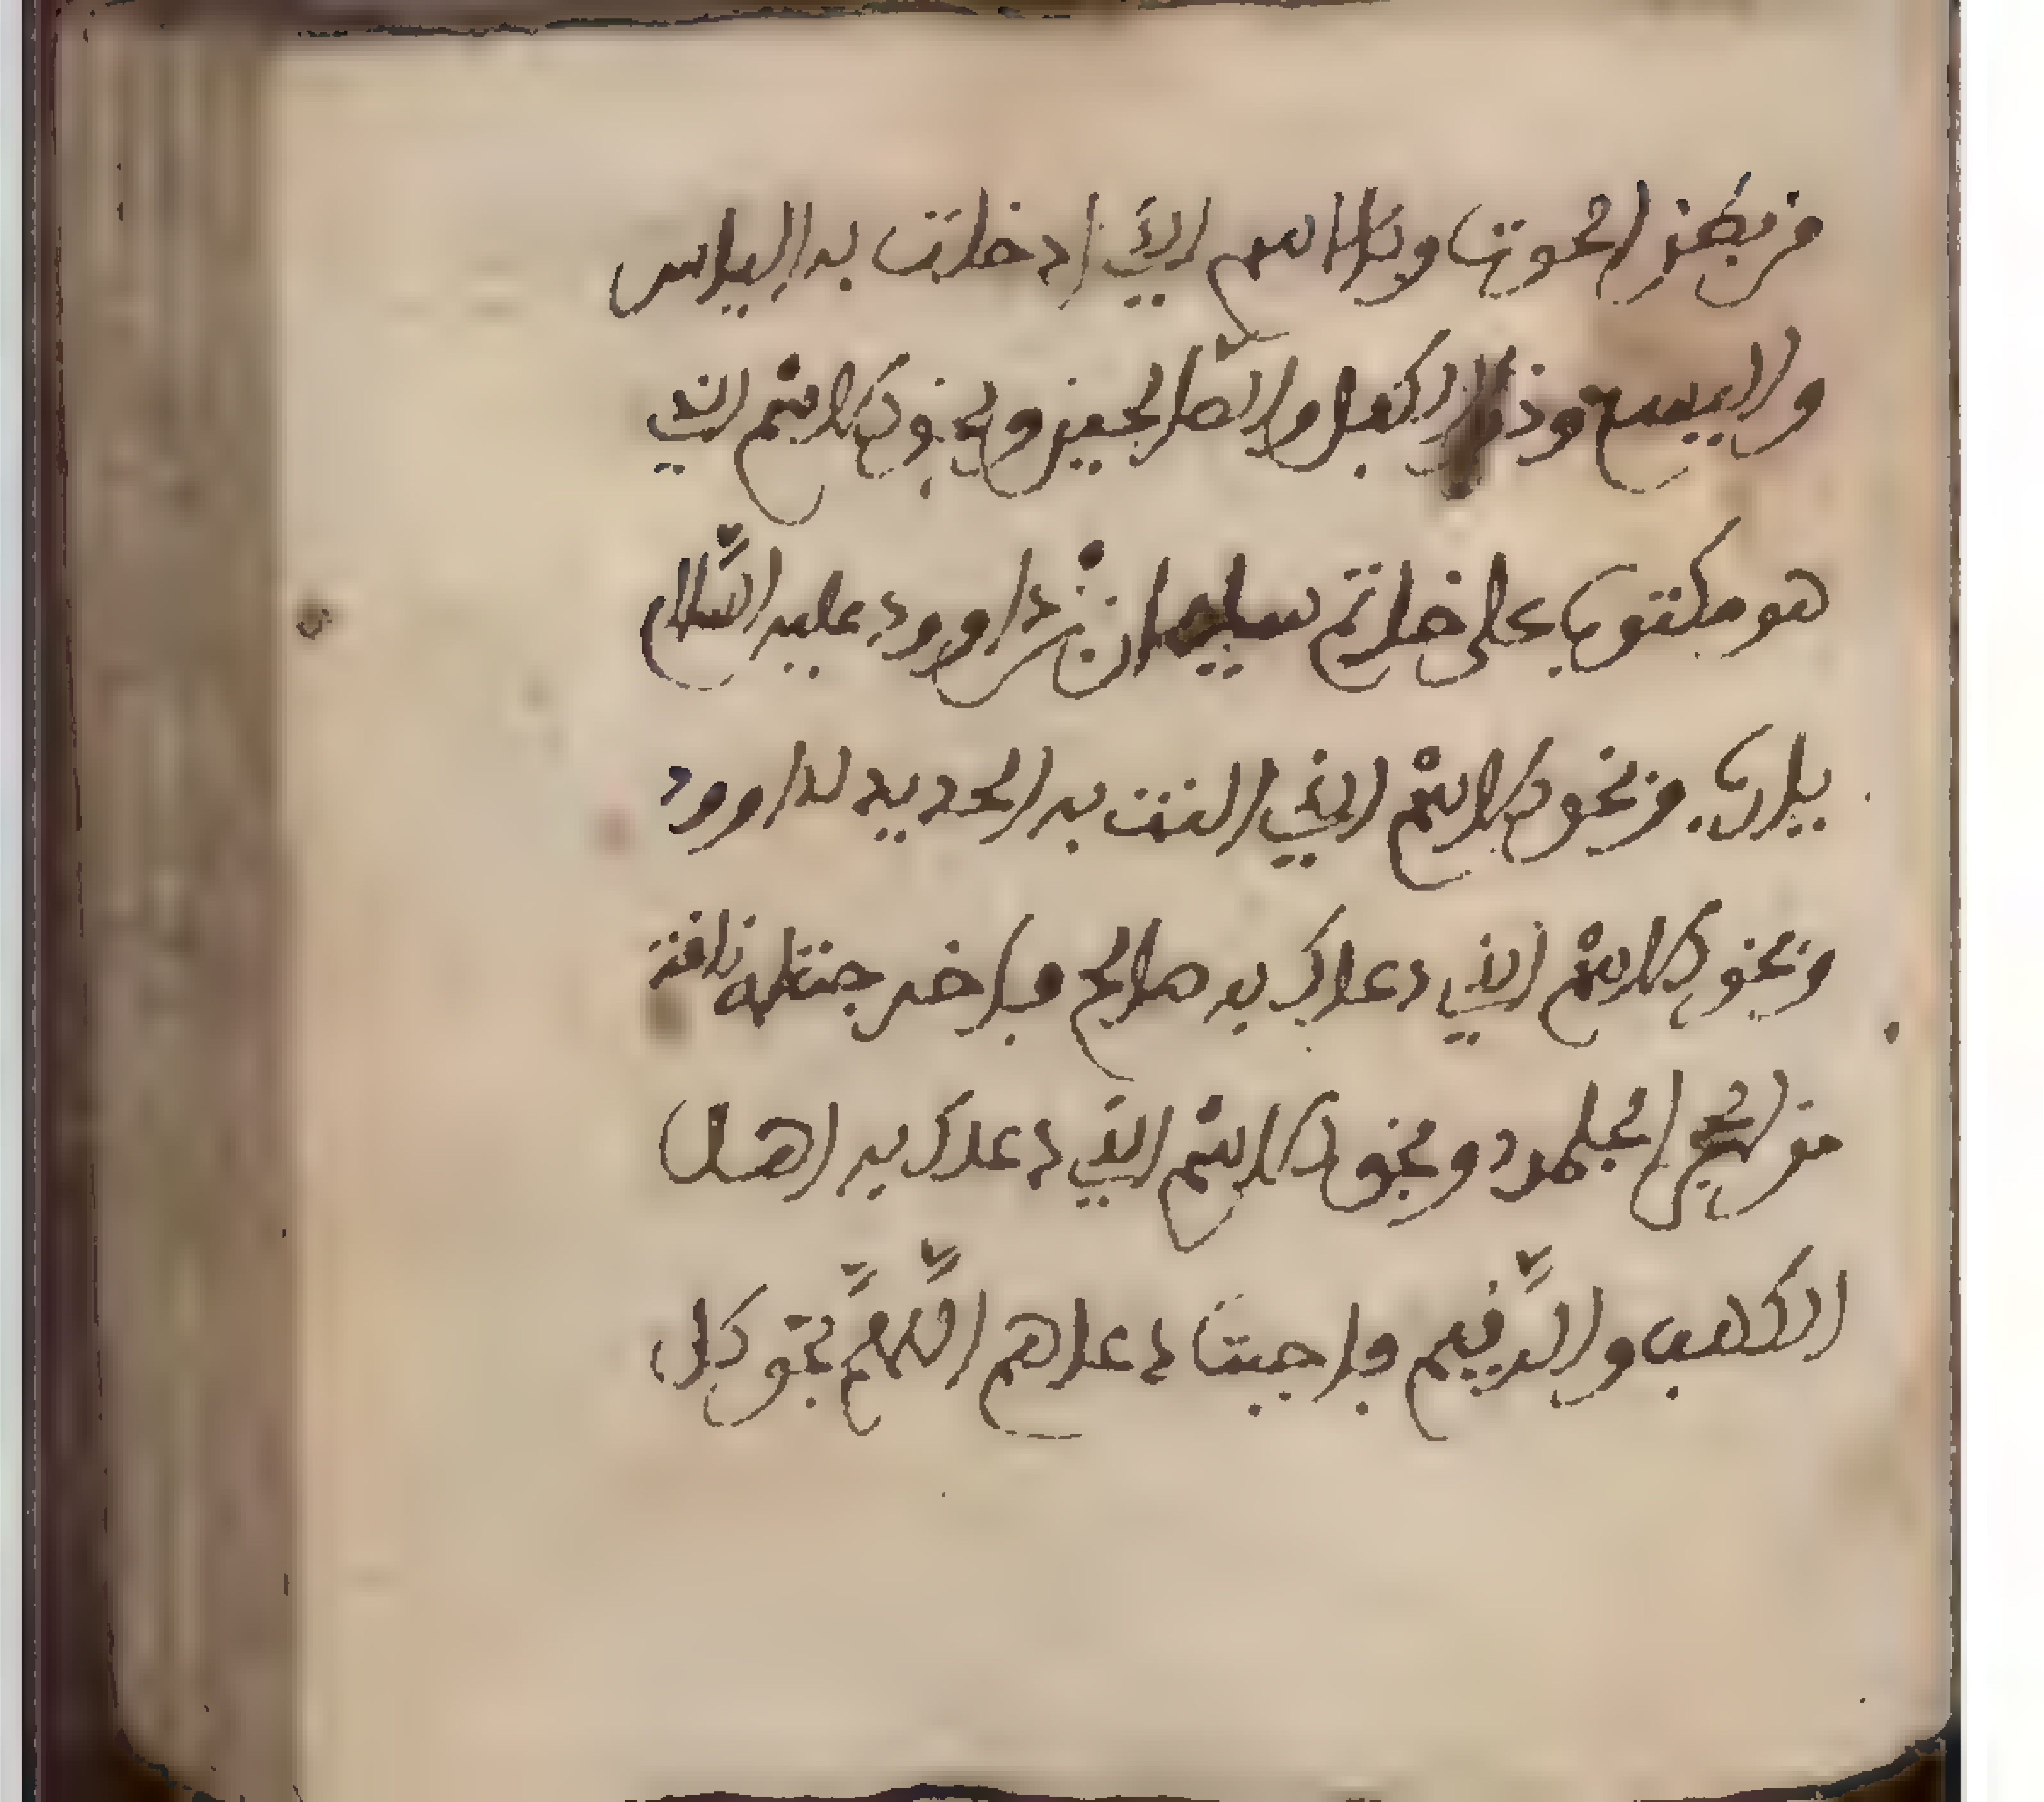 من بطن الحوت وبالاسم الذي ادخلت به إلياس
واليسع وذا الكفل والصالحين وبحق ذلك الاسم الذي
هو مكتوب على خاتم سليمان بن داوود عليه السّلام
يارب وبحق ذلك الاسم الذي النت به الحديد لداوود
وبحق ذلك الاسم الذي دعاك به صالح فاخرجت له ناقة
من الحجر الجلمود وبحق ذلك الاسم الذي دعاك به اهل
الكهف والرّقيم فاجبت دعاهم اللّهمّ بحق ذلك